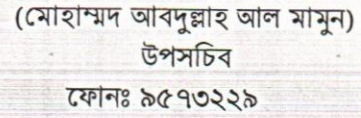 (মোহাম্মদ আবদুল্লাহ আল মামুন)
উপসচিব
ফোনঃ ৯৫৭৩২২৯